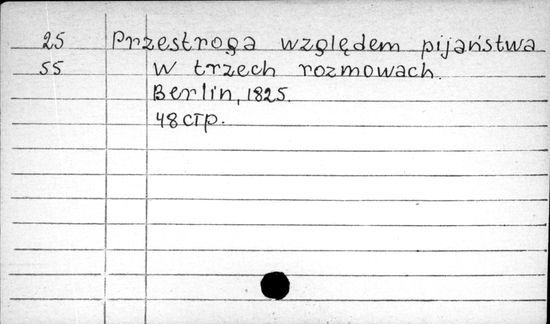 25 Przestroga względem pijaństwa
55 w trzech rozmowach.
Berlin, 1825.
48 стр.